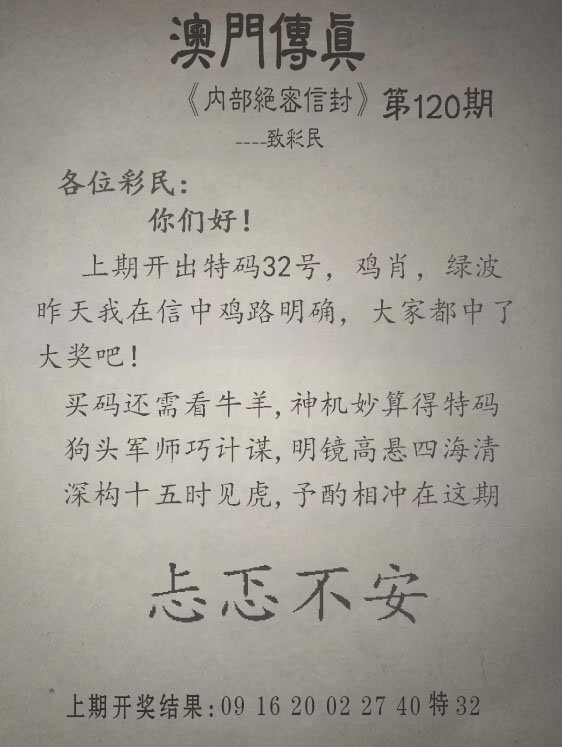 澳門傳真
《内部絕密信封》第120期
----致彩民
各位彩民：
你们好！
上期开出特码32号，鸡肖，绿波
昨天我在信中鸡路明确，大家都中了
大奖吧！
买码还需看牛羊,神机妙算得特码
狗头军师巧计谋,明镜高悬四海清
深构十五时见虎,予酌相冲在这期
忐忑不安
上期开奖结果:09 16 20 02 27 40 特 32